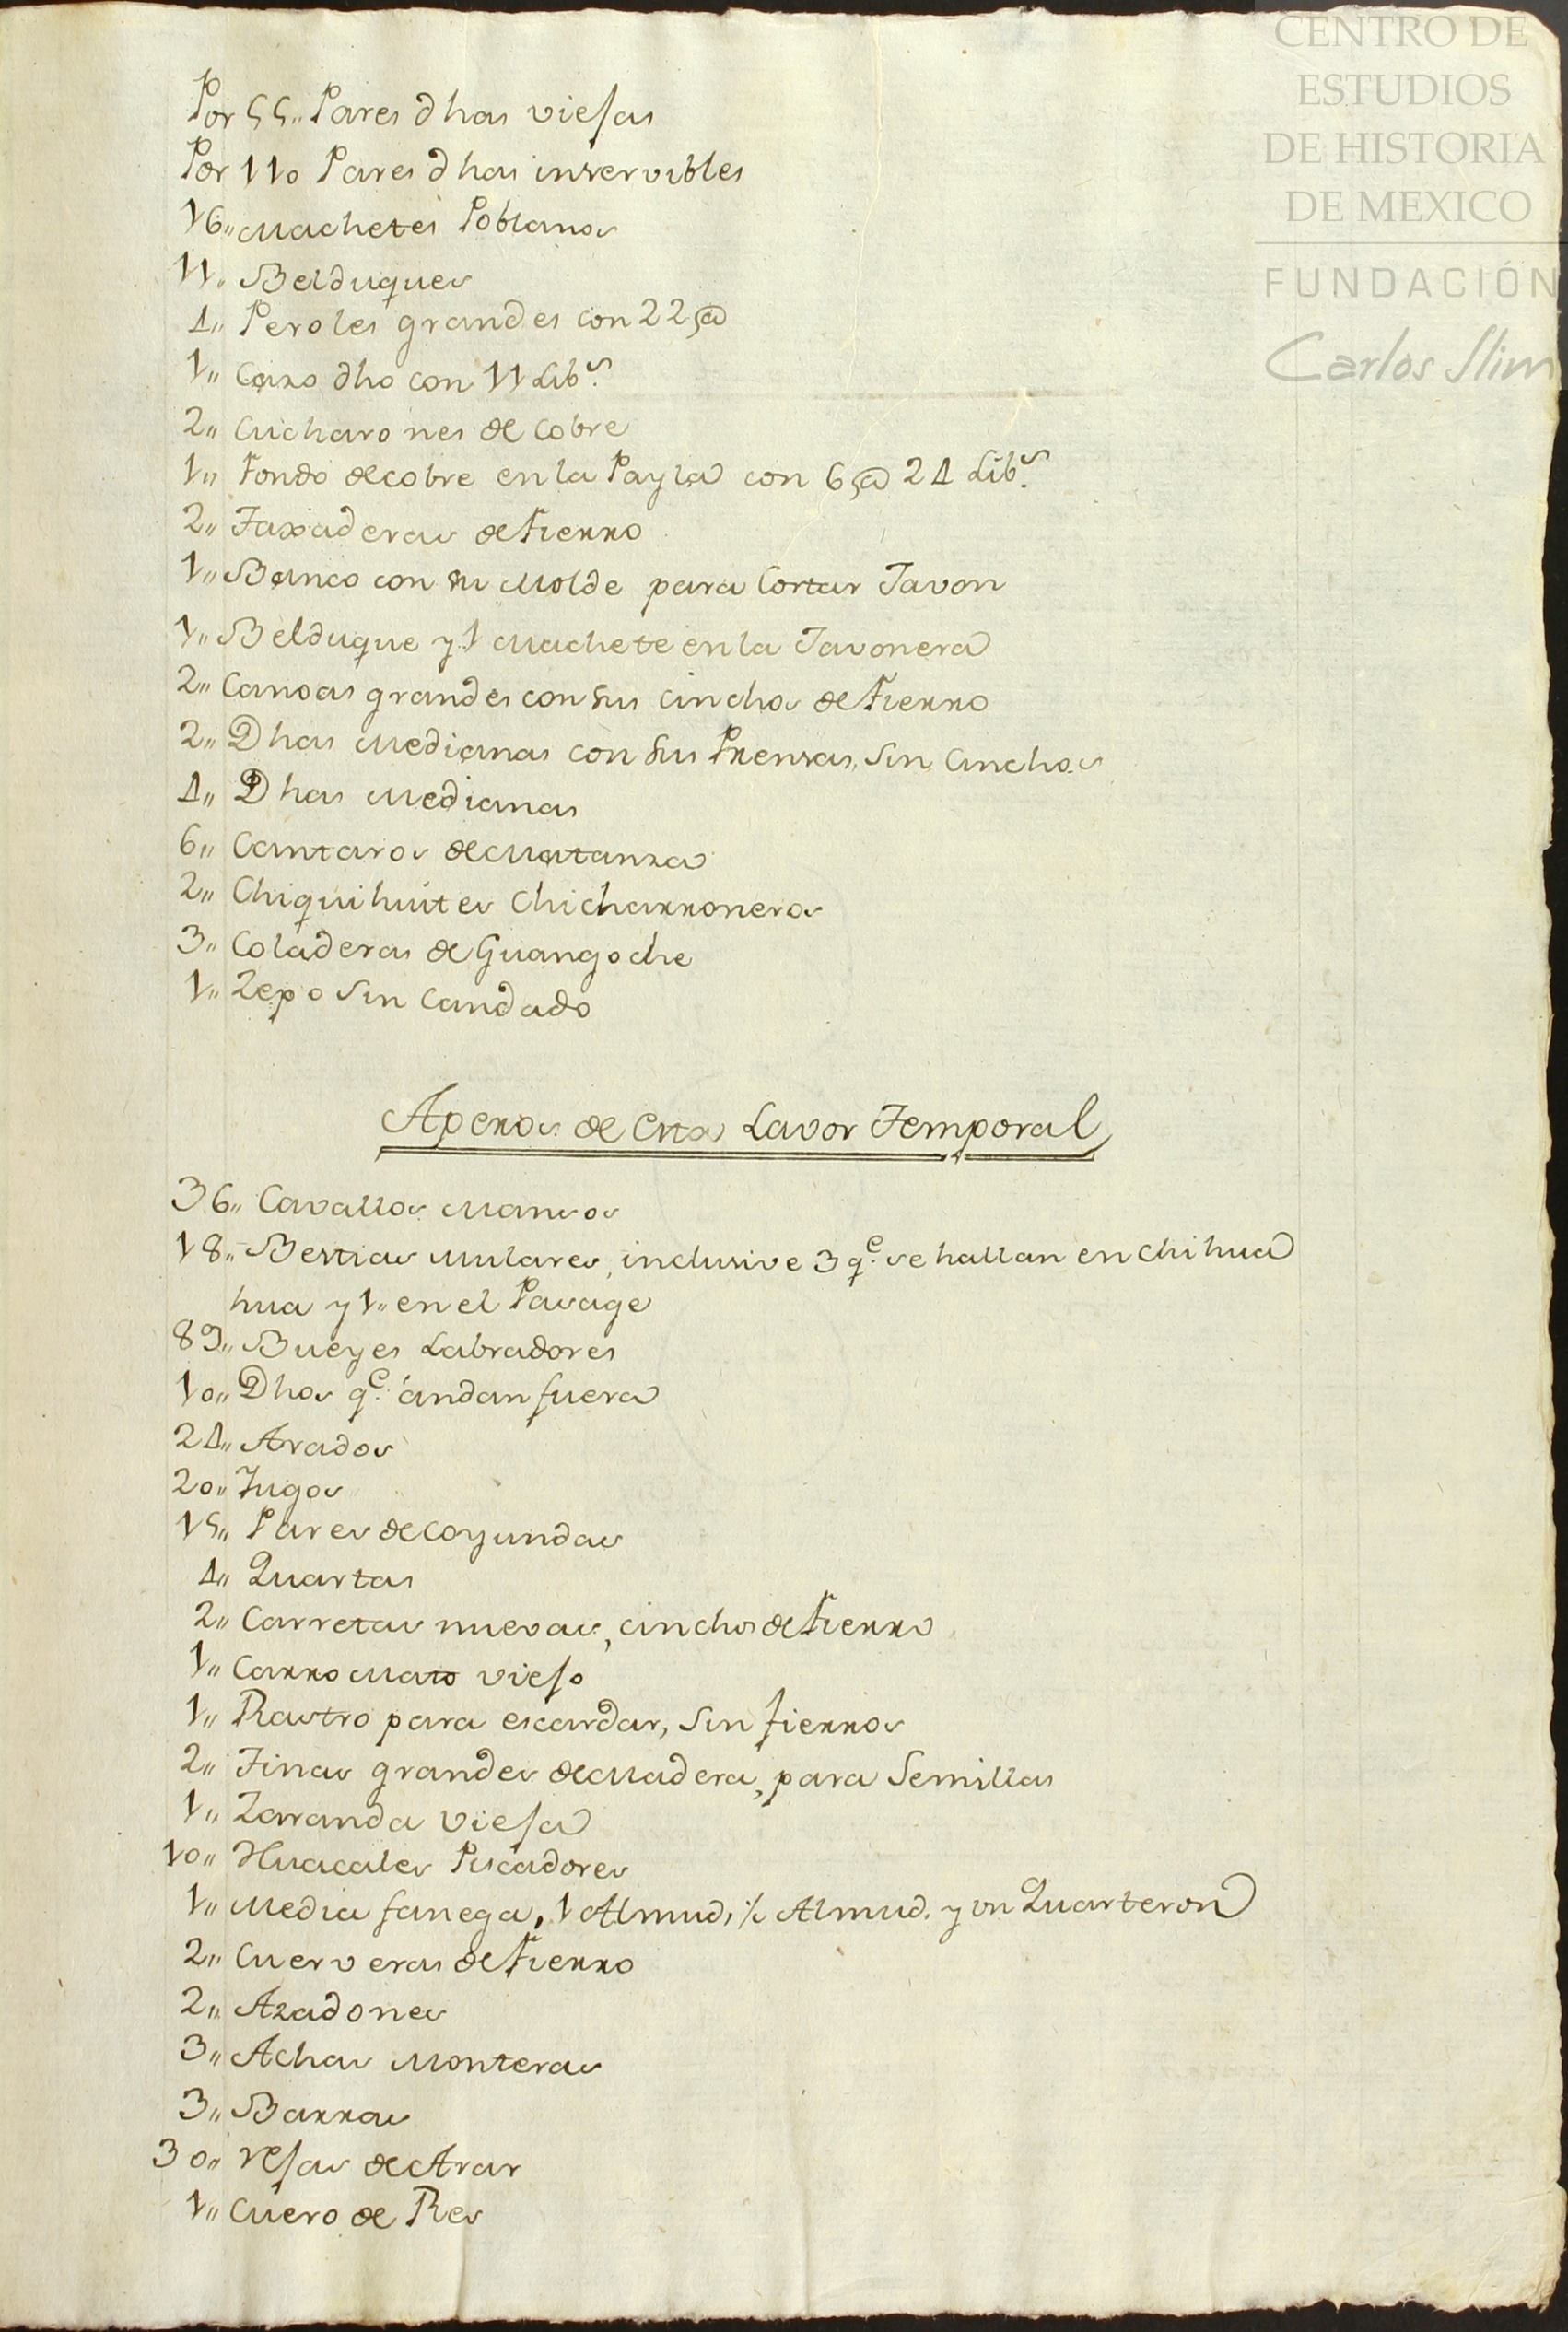 CENTRO DE
ESTUDIOS
DE HISTORIA
DE MEXICO
FUNDACIÓN
Carlos Slim
Por 55,, Pares dhas viejas
Por 110 Pares dhas inservibles
16,, Machetes Poblanos
11,, Belduques
4,, Peroles grandes con 22 @
1,, Cazo dho con 11 Libs.
2,, Cucharones de Cobre
1,, Fondo de cobre en la Payla con 6 @ 24 Libs.
2,, Taxaderas de Fierro
1,, Banco con su Molde para Cortar Javon
1,, Belduque y 1 Machete en la Javonera
2,, Canoas grandes con sus cinchos de Fierro
2,, Dhas Medianas con sus Prensas, sin Cinchos
4,, Dhas Medianas
6,, Cantaros de Matanza
2,, Chiquihuites Chicharroneros
3,, Coladeras de Guangoche
1,, Zepo sin Candado
Aperos de esta Lavor Temporal
36,, Cavallos Mansos
18,, Bestias Mulares, inclusive 3 qe. se hallan en Chihua
hua y 1,, en el Pasage
89,, Bueyes Labradores
10,, Dhos qe. andan fuera
24,, Arados
20,, Yugos
15,, Pares de Coyundas
4,, Quartas
2,, Carretas nuevas, cinchos de Fierro
1,, Carro Mato viejo
1,, Rastro para escardar, sin fierros
2,, Tinas grandes de Madera, para Semillas
1,, Zarranda vieja
10,, Huacales Piscadores
1,, Media fanega, 1 Almud, ½ Almud. y un Quarteron
2,, Cuerveras de Fierro
2,, Azadones
3,, Achas Monteras
3,, Barras
30,, Rejas de Arar
1,, Cuero de Res